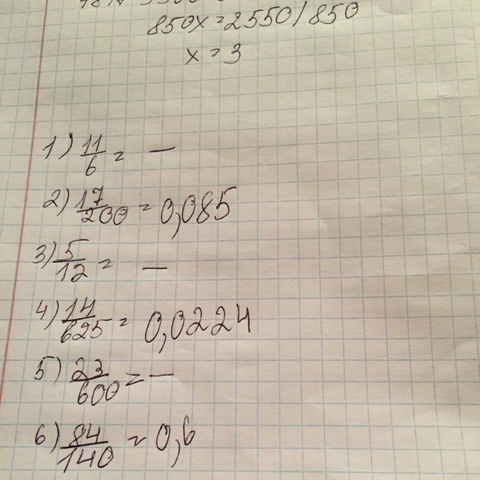 850x = 2550 / 850
x = 3
1) 11/6 = —
2) 17/200 = 0,085
3) 5/12 = —
4) 14/625 = 0,0224
5) 23/600 = —
6) 84/140 = 0,6